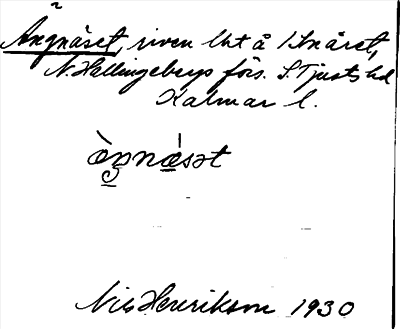 Ängnäset, riven lht å Itnåret,
N. Hallingebergs förs. S. Tjusts hd
Kalmar l.
òŋnǽsət
Nils Henrikson 1930